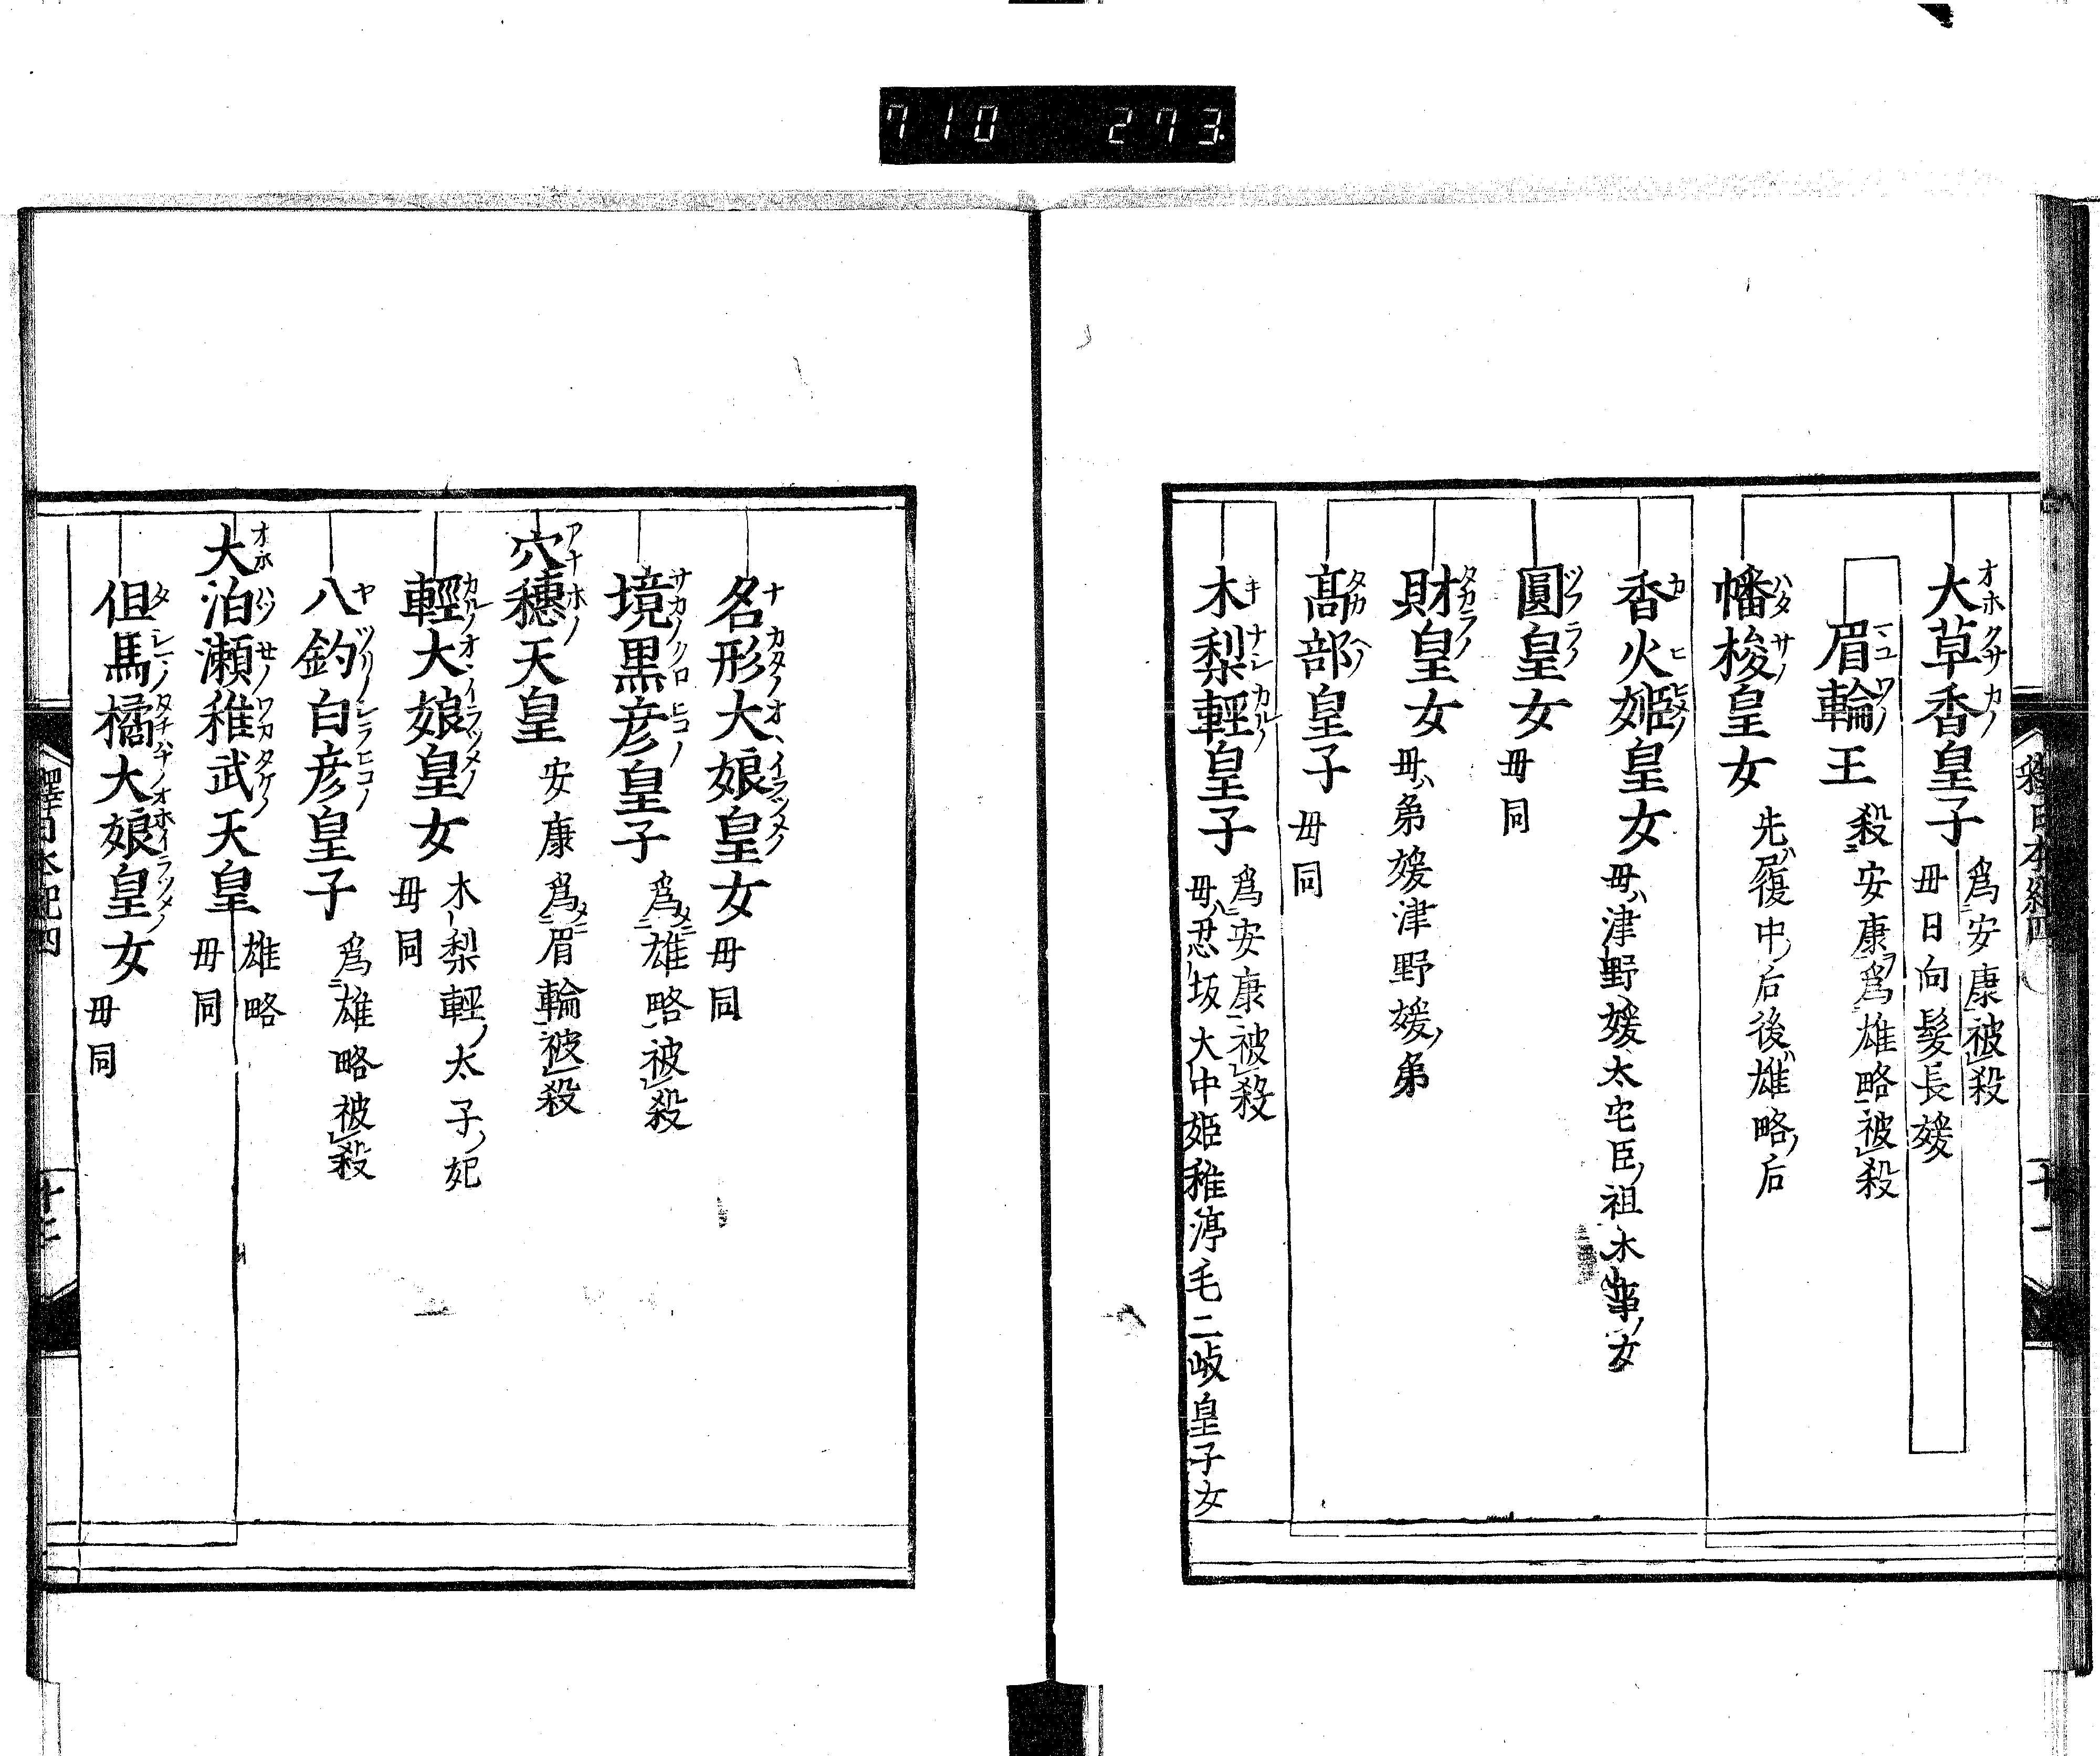 710 273
大草香皇子 為安康被殺
母日向髪長媛
眉輪王 殺安康為雄略被殺
幡梭皇女 先履中后後雄略后
香火姫皇女 母津野媛太宅臣祖木事女
圓皇女 毋同
財皇女 毋弟媛津野媛弟
髙部皇子 毋同
木梨輕皇子 為安康被殺
毋忍坂大中姫稚渟毛二岐皇子女
名形大娘皇女 毋同
境黒彦皇子 為雄略被殺
穴穗天皇 安康為眉輪被殺
輕大娘皇女 木梨輕太子妃
毋同
八釣白彦皇子 為雄略被殺
大泊瀬稚武天皇 雄略
毋同
但馬橘大娘皇女 毋同
釋日本紀四